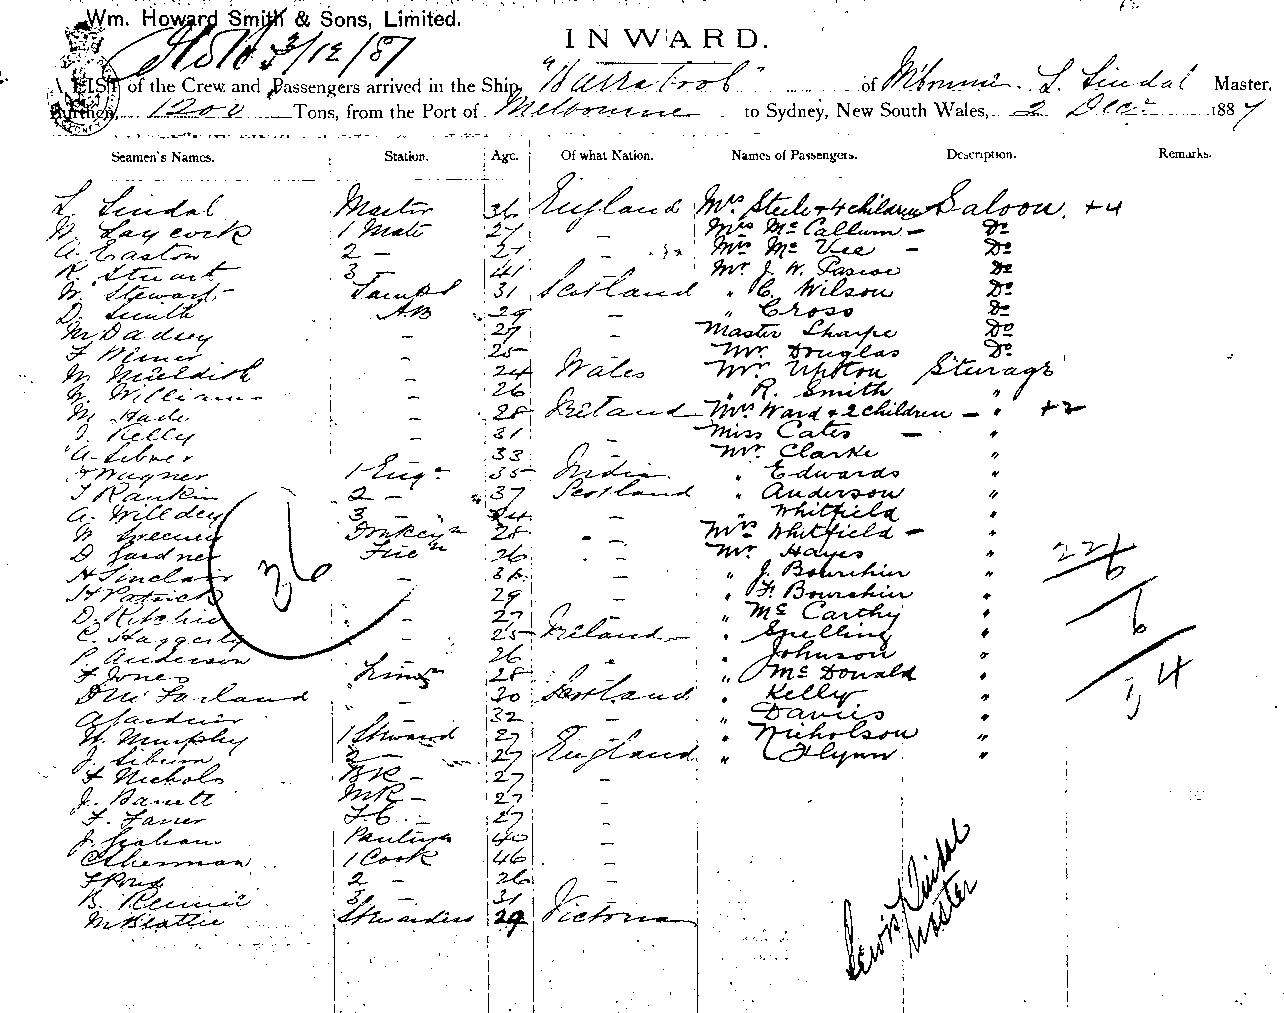 Wm. Howard Smith & Sons, Limited.
3/12/87
INWARD.
LIST of the Crew and Passengers arrived in the Ship "Barrabool" of Melbourne. L. Lindal Master,
Burthen, 1200 Tons, from the Port of Melbourne to Sydney, New South Wales, 2 Decr 1887
Seamen's Names. Station. Age. Of what Nation. Names of Passengers. Description. Remarks.
L. Lindal Master 36 England Mrs Steele + 4 children Saloon. +4
Laycock 1 Mate 27 — Mrs McCallum — Do
A. Easton 2 — 27 — Mrs McVee — Do
R. Stuart 3 — 41 — Mr J. W. Pascoe Do
W. Stewart Lamps 31 Scotland " C. Wilson Do
D. Smith AB 29 — " Cross Do
M. Dadsey — 27 — Master Sharpe Do
F. — 25 — Mr Douglas Do
W. — 24 Wales Mr Upton Steerage
W. Williams — 26 — " R. Smith "
M. — 28 Ireland Mrs Ward + 2 children — " +2
J. Kelly — 31 — Miss Cates — "
A. — 33 — Mr Clarke "
Wagner 1 Engr 35 India " Edwards "
T. Rankin 2 — 37 Scotland " Anderson "
A. Willdey 3 — 24 — " Whitfield "
W. Donkeyn 28 — Mrs Whitfield — "
D. Gardner Firen 26 — Mr Hayes "
H. Sinclair — — " J. Bourchin "
H. Patrick — 29 — " F. Bourchin "
D. Ritchie — 27 — " McCarthy "
C. Haggerty — 25 Ireland — " Spelling "
P. Anderson — 26 " " Johnson "
F. Jones 28 — " McDonald "
D. McFarland — 30 Scotland " Kelly "
— 32 — " Davies "
W. Murphy 1 Steward 27 — " Nicholson "
J. 2 — 27 England " Flynn "
F. Nichols BK — 27 —
J. Barrett MR — 27 —
F. F.C. — 27 —
J. Graham Pantryn 40 —
Sherman 1 Cook 46 —
F. Pond 2 — 26 —
B. Rennie 3 — 31 —
M. Beattie Stewardess 29 Victoria
36
22
6
6
34
Lewis Lindal
Master